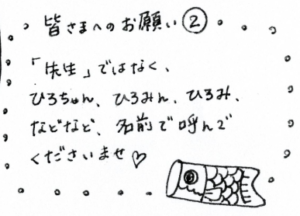 皆さまへのお願い②
「先生」ではなく、
ひろちゃん、ひろみん、ひろみ、
などなど、名前で呼んで
くださいませ♡